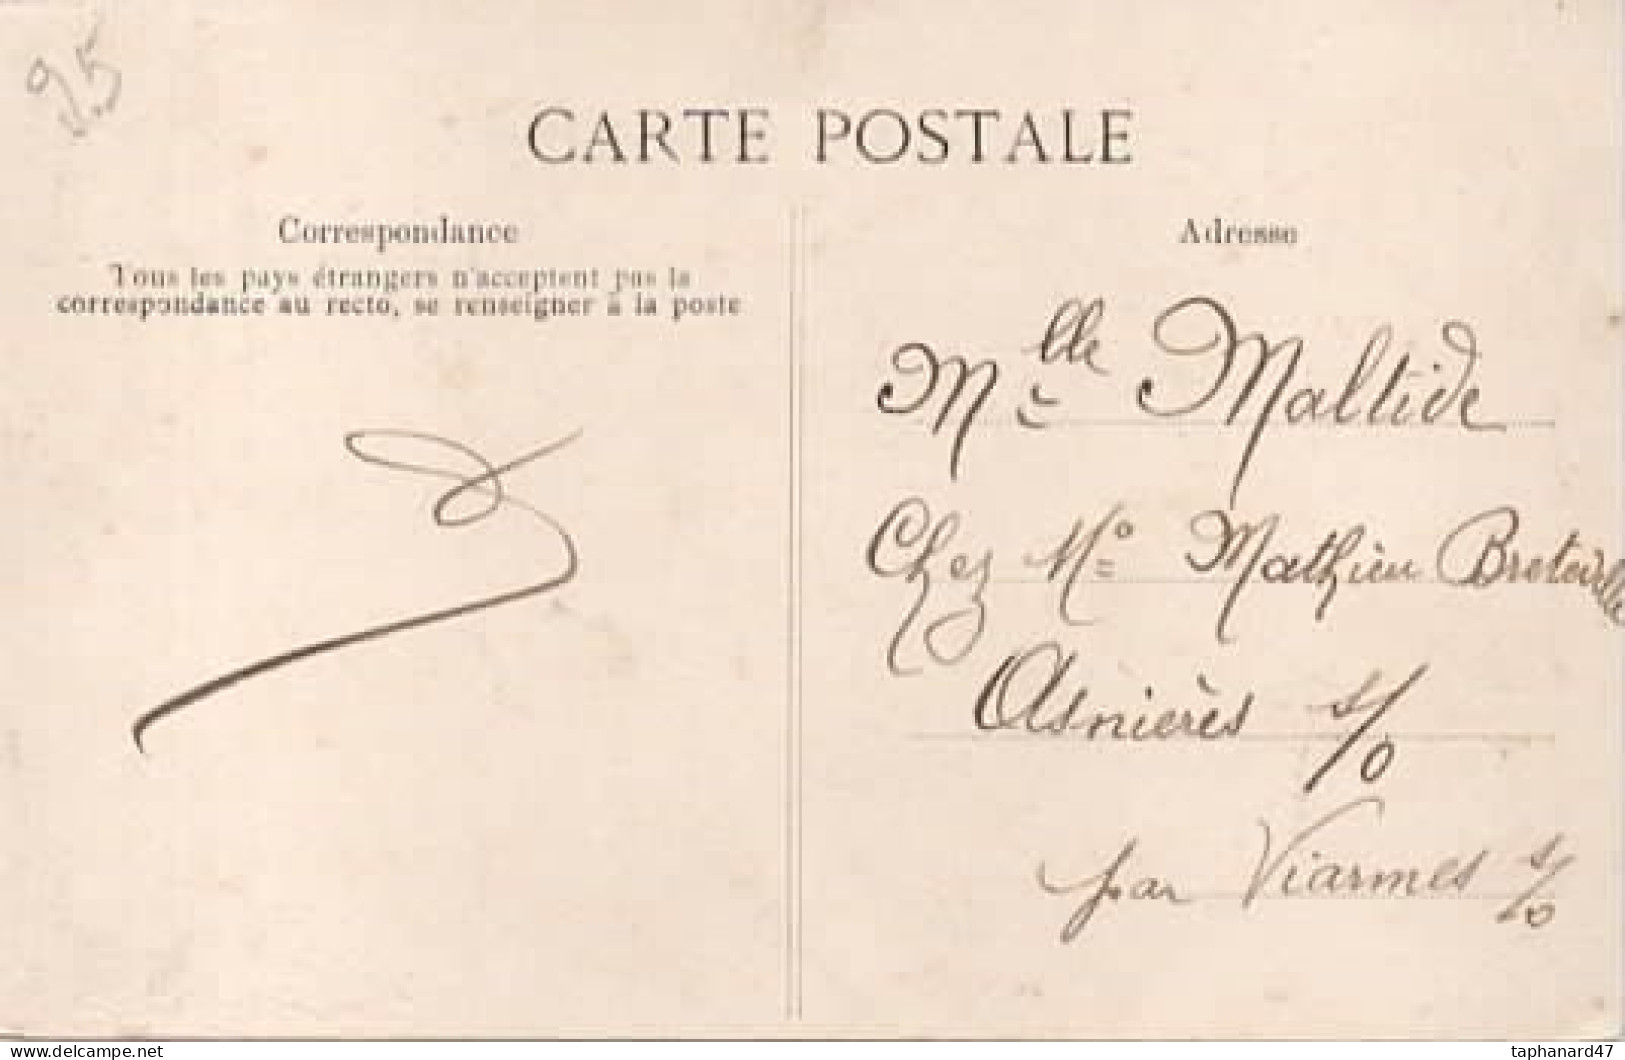 95
CARTE POSTALE
Correspondance
Tous les pays étrangers n'acceptent pas la
correspondance au recto, se renseigner à la poste
Adresse
Mlle Maltide
Chez Mr Mathieu Breteville
Asnières s/o
par Viarmes s/o
© delcampe.net
taphanard47